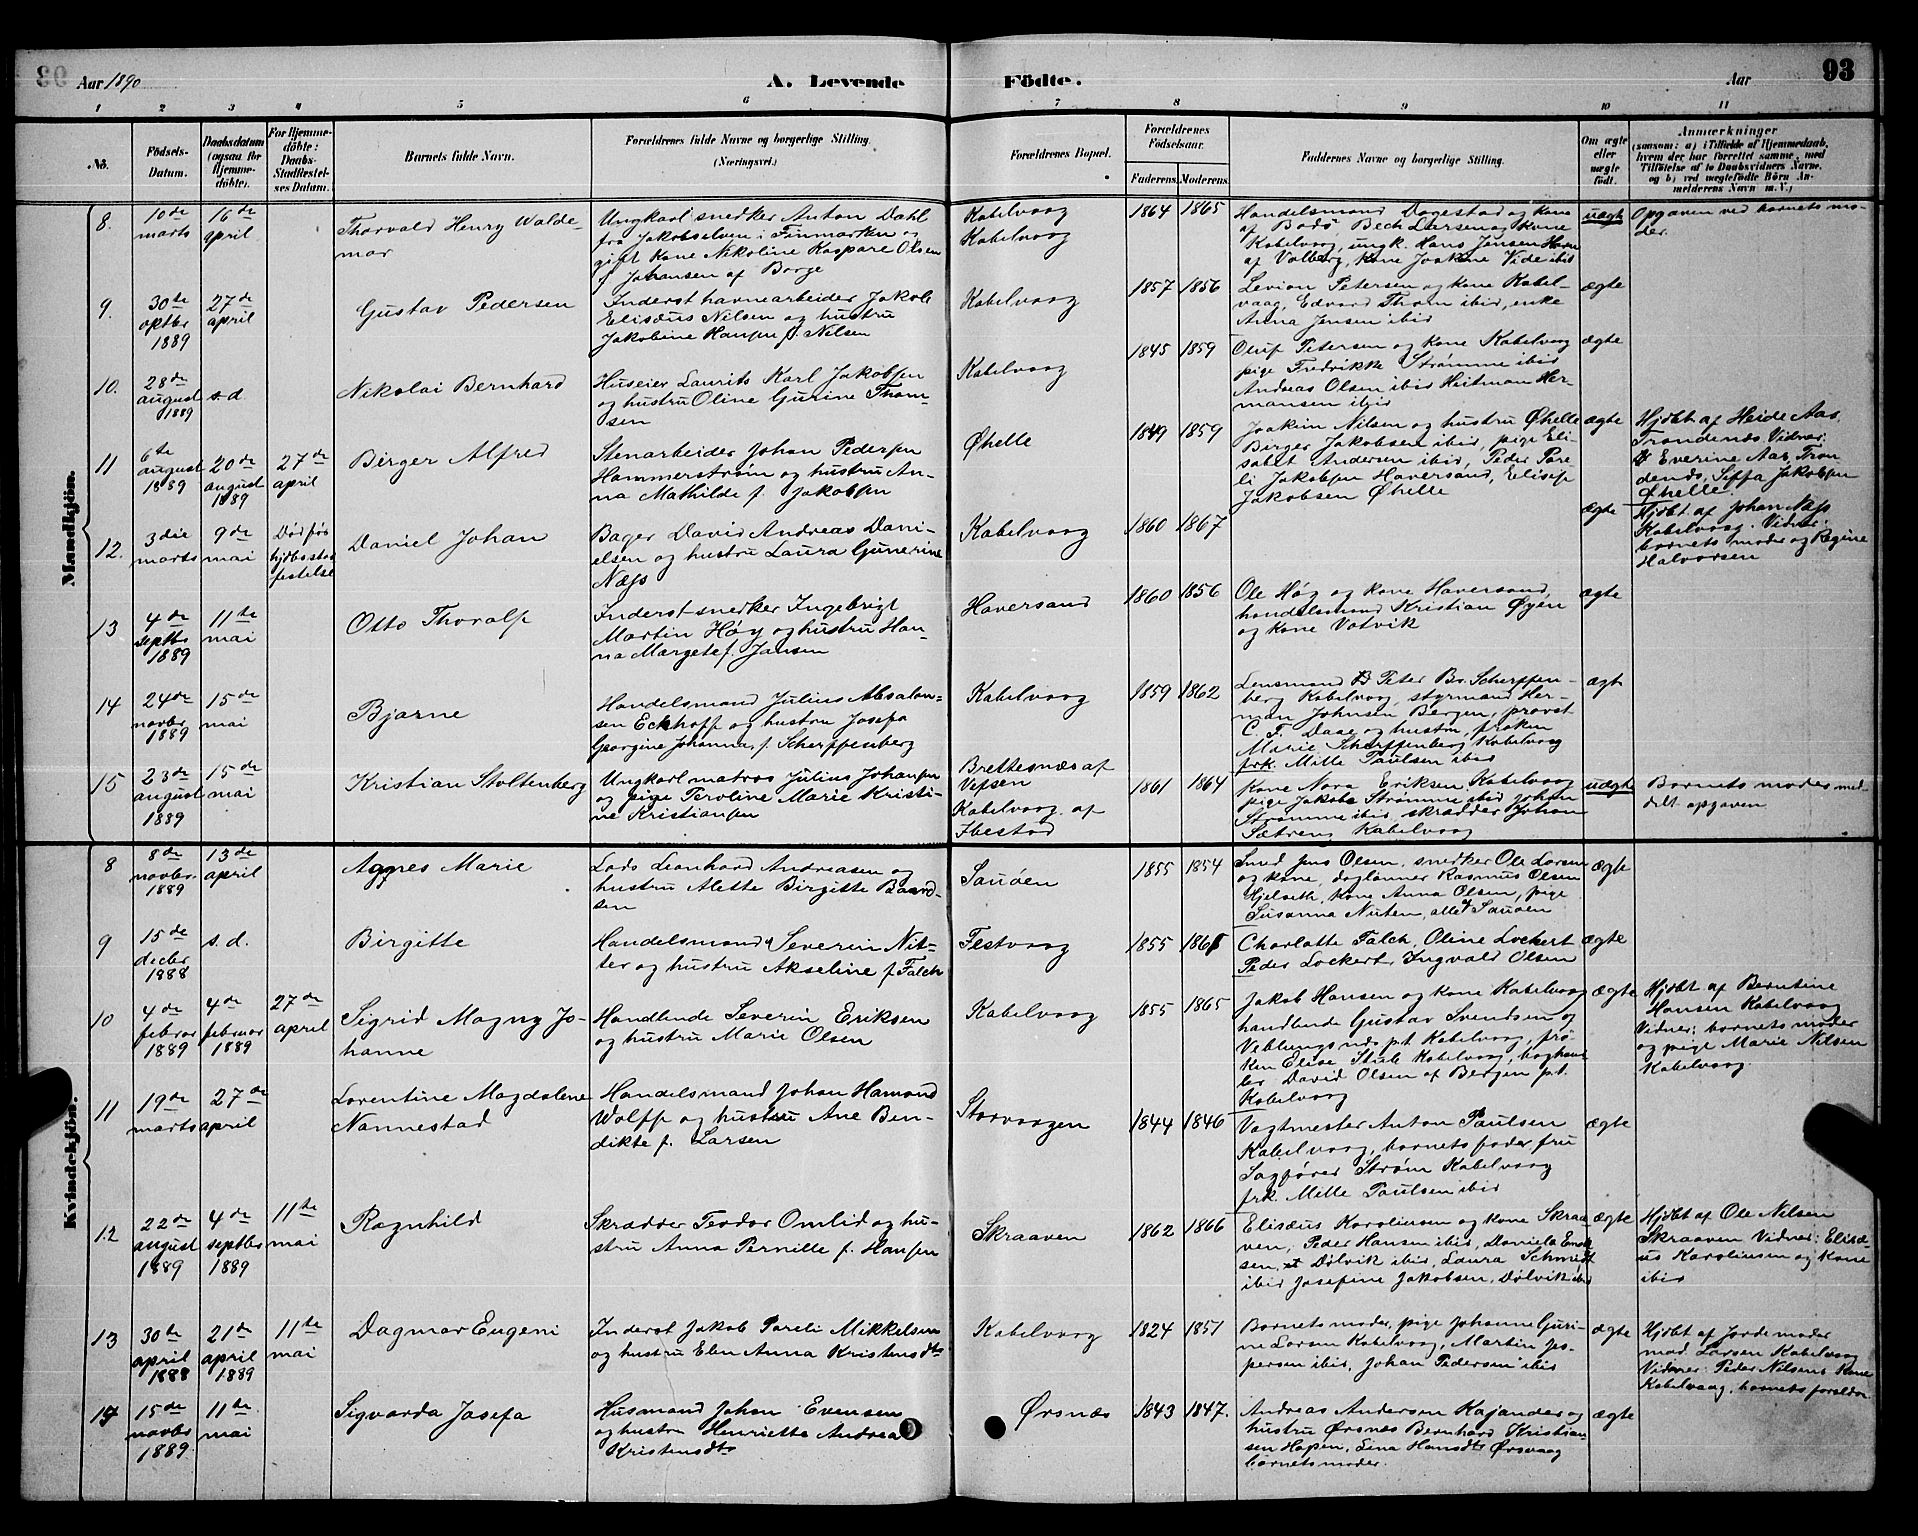 Aar 1890
A. Levende
Födte.
Aar
93
1 2 3 4 5 6 7 8 9 10 11
No.
Födsels-
Datum.
Daabsdatum
(ogsaa for
Hjemme-
döbte).
For Hjemme-
döbte:
Daabs-
Stadfæstel-
ses Datum.
Barnets fulde Navn.
Forældrenes fulde Navne og borgerlige Stilling.
(Næringsvei.)
Forældrenes Bopæl.
Forældrenes
Födselsaar.
Faderens. Moderens.
Faddernes Navne og borgerlige Stilling.
Om ægte
eller
uægte
födt.
Anmærkninger
(saasom: a) i Tilfælde af Hjemmedaab,
hvem der har forrettet samme, med
Tilföielse af to Daabsvidners Navne,
og b) ved uægtefödte Börn An-
melderens Navn m. V.)
Mandkjön.
8. 10de
marts
16de
april
Thorvald Henry Walde-
mar
Ungkarl snedker Anton Dahl
fra Jakobselven i Finmarken og
gift kone Nikoline Kaspare Olsen
f Johansen af Borge
Kabelvaag
Kabelvaag
1864 1865
Handelsmand Dagestad og kone
af Bodø Bech Larsen og kone
Kabelvaag, ungk. Hans Jensen Havn
af Valberg, kone Joakine Vide ibid
uægte
Opgaven ved barnets mo-
der.
9. 30te
oktbr
1889
27de
april
Gustav Pedersen
Inderst havnearbeider Jakob
Elisæus Nilsen og hustru
Jakobine Hansen f. Nilsen
Kabelvaag
1857 1856
Levion Petersen og kone Kabel-
vaag, Edvard Thom ibid, enke
Anna Jensen ibid
ægte
10. 28de
august
1889
s.d
Nikolai Bernhard
Huseier Laurits Karl Jakobsen
og hustru Oline Gurine Thom-
sen
Kabelvaag
1845 1859
Oluf Petersen og kone Kabelvaag
pige Fredrikke Strømme ibid
Andreas Olsen ibid Heitman Her-
mansen ibid
ægte
11 6te
august
1889
20de
august
1889
27de
april
Birger Alfred
Stenarbeider Johan Pedersen
Hammerstrøm og hustru An-
na Mathilde f. Jakobsen
Øhelle
1849 1859
Joakim Nilsen og hustru Øhelle
Birger Jakobsen ibid, pige Eli-
sabet Andersen ibid, Peder Pare-
li Jakobsen Haversand, Elisif
Jakobsen Øhelle
ægte
Hjdbt af Heide Aas,
Trondenæs Vidner:
Everine Aas, Tron
denæs, Siffa Jakobsen
Øhelle.
12. 3die
marts
9de
mai
Død før
hjdbs stad
festelse
Daniel Johan
Bager David Andreas Dani-
elsen og hustru Laura Gunerine
Næss
Kabelvaag
1860 1867
ægte
Hjdbt af Johan Næss
Kabelvaag. Vidner:
barnets moder og Regine
Halvorsen
13 4de
septbr
1889
11te
mai
Otto Thoralf
Inderst snedker Ingebrigt
Martin Høy og hustru Han-
na Margrete f. Jansen
Haversand
1860 1856
Ole Høg og kone Haversand,
handelsmand Kristian Øyen
og kone Votvik
ægte
14 24de
novbr
1889
15de
mai
Bjarne
Handelsmand Julius Absalon-
sen Eckhoff og hustru Josefa
Georgine Johanna, f. Scherffenberg
Kabelvaag
1859 1862
Lensmand Peter Br. Scherffen-
berg Kabelvaag, styrmand Her-
man Johnsen Bergen, provst
C. F. Daae og hustru, frøken
Marie Scherffenberg Kabelvaag
frk. Mille Paulsen ibid
ægt
15 23de
august
1889
15de
mai
Kristian Stoltenberg
Ungkarl matros Julius Johansen
og pige Peroline Marie Kristi-
ne Kristiansen
Brettesnæs af
Vefsen
Kabelvaag af
Ibestad
1861 1864
Kone Nora Eriksen Kabelvaag
pige Jakoba Strømme ibid Johan
Strømme ibid, skrædder Johan
Sætreng Kabelvaag
uægte
Barnets moder med-
delt opgaven
Kvindekjön.
8 8de
novbr.
1889
13de
april
Agnes Marie
Lods Leonhard Andreasen og
hustru Mette Birgitte Baard-
sen
Sauøen
1855 1854
Smed Jens Olsen, snedker Ole Larsen
og kone, daglønner Rasmus Olsen
Hjelseth, kone Anna Olsen, pige
Susanna Nuten, alle Sauøen
ægte
9 15de
decbr
1888
s.d.
Birgitte
Handelsmand Severin Nit-
ter og hustru Akseline f Falch
Festvaag
1855 1865
Charlotte Falch, Oline Lockert
Peder Lockert, Ingvald Olsen
ægte
10 4de
febrar
1889
4de
februar
1889
27de
april
Sigrid Magny Jo-
hanne
Handlende Severin Eriksen
og hustru Marie Olsen
Kabelvaag
1855 1865
Jakob Hansen og kone Kabelvaag
handlende Gustav Svendsen og
Veblungsnæs p.t. Kabelvaag, frø-
ken Elise Stub Kabelvaag, boghand
ler David Olsen af Bergen p.t.
Kabelvaag
ægte
Hjdbt af Berntine
Hansen Kabelvaag
Vidner: barnets moder
og pige Marie Nilsen
Kabelvaag.
11 19de
marts
27de
april
Lorentine Magdalene
Nannestad
Handelsmand Johan Hamond
Wolff og hustru Ane Ben-
dikte f. Larsen
Storvaagen
1844 1846
Vagtmester Anton Paulsen
Kabelvaag, barnets fader fru
Sagfører Strøm Kabelvaag
frk. Mille Paulsen ibid
ægte
12 22de
august
1889
4de
septbr
1889
11te
mai
Ragnhild
Skrædder Teodor Omlid og hu-
stru Anna Pernille f. Hansen
Skraaven
1862 1866
Elisæus Karoliussen og kone Skraa
ven, Peder Hansen ibid, Daniela
sen, Dølvik ibid, Laura Schmidt
ibid Josefine Jakobsen, Dølvik ibid
ægte
Hjdbt af Ole Nilsen
Skraaven Vidner: Elisæ-
us Karoliusen og kone
ibid
13 30te
april
1888
21de
april
1889
11te
mai
Dagmar Eugeni
Inderst Jakob Pareli Mikkelsen
og hustru Elen Anna Kristensdtr
Kabelvaag
1824 1851
Barnets moder, pige Johanne Guri-
ne Larsen Kabelvaag, Martin Jes-
persen ibid, Johan Pedersen ibid
ægte
Hjdbt af Jordemoder
mad. Larsen Kabelvaag
Vidner: Peder Nilsens kone
Kabelvaag, barnets forældre
14 15de
novbr
1889
11te
mai
Sigvarda Josefa
Husmand Johan Evensen
og hustru Henriette Andrea
Kristensdtr
Ørsnæs
1843 1847.
Andreas Andersen Kajander og
hustru Ørsnæs Bernhard Kristian-
sen Hopen, Lina Hansdtr Ørsvaag
barnets moder.
ægte